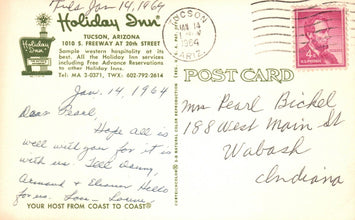 Jan 14, 1964
Holiday Inn®
TUCSON, ARIZONA
1010 S. FREEWAY AT 20th STREET
Sample western hospitality at its
best. All the Holiday Inn services
including Free Advance Reservations
to other Holiday Inns.
Tel: MA 3-0371, TWX: 602-792-2614
Holiday Inn
TUCSON
JAN 14
1964
ARIZ.
4¢
POST CARD
Jan. 14, 1964
Dear Pearl,
Hope all is
well with you for it is
with us. Tell
Armand & Eleanor Hello
for us. Love -
YOUR HOST FROM COAST TO COAST®
Mrs Pearl Bickel
198 West Main St
Wabash
Indiana